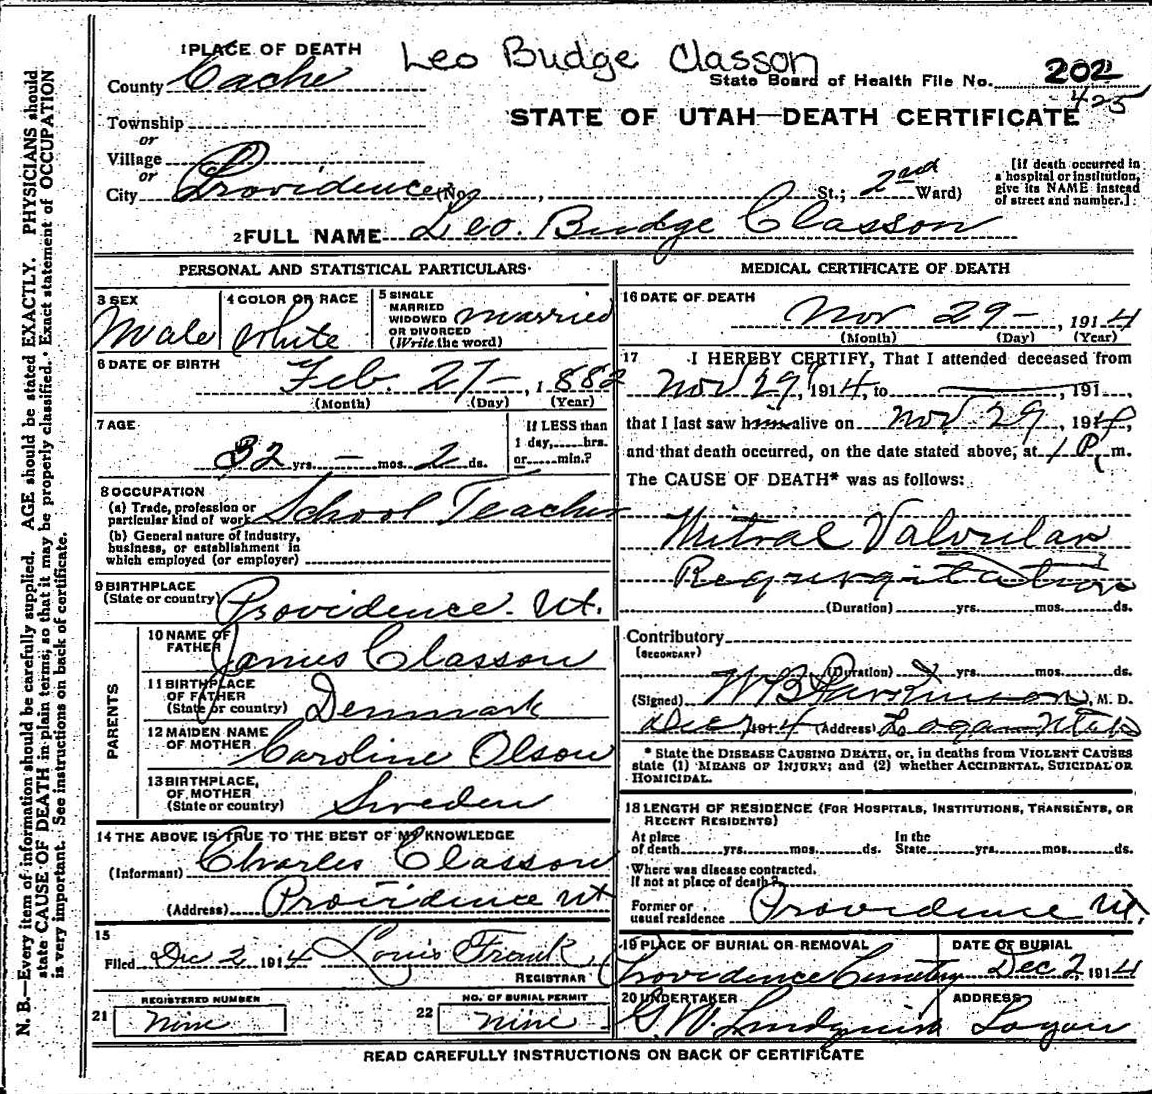 Leo Budge Classon
1 PLACE OF DEATH
County Cache
State Board of Health File No. 202
425
Township
or
Village
or
City Providence (No. , St.; 2nd Ward)
STATE OF UTAH—DEATH CERTIFICATE
[If death occurred in
a hospital or institution,
give its NAME instead
of street and number.]
2 FULL NAME Leo. Budge Classon
PERSONAL AND STATISTICAL PARTICULARS
3 SEX
Male
4 COLOR OR RACE
White
5 SINGLE
MARRIED
WIDOWED
OR DIVORCED
(Write the word)
married
6 DATE OF BIRTH
Feb. 27 — , 1882
(Month) (Day) (Year)
7 AGE
32 yrs. — mos. 2 ds.
If LESS than
1 day, hrs.
or min.?
8 OCCUPATION
(a) Trade, profession or
particular kind of work School Teacher
(b) General nature of Industry,
business, or establishment in
which employed (or employer)
9 BIRTHPLACE
(State or country) Providence. Ut.
PARENTS
10 NAME OF
FATHER James Classon
11 BIRTHPLACE
OF FATHER
(State or country) Denmark
12 MAIDEN NAME
OF MOTHER Caroline Olson
13 BIRTHPLACE,
OF MOTHER
(State or country) Sweden
14 THE ABOVE IS TRUE TO THE BEST OF MY KNOWLEDGE
(Informant) Charles Classon
(Address) Providence Ut
15
Filed Dec 2 1914 Louis Frank
REGISTRAR
21 REGISTERED NUMBER
nine
22 NO. OF BURIAL PERMIT
nine
MEDICAL CERTIFICATE OF DEATH
16 DATE OF DEATH
Nov 29 — , 1914
(Month) (Day) (Year)
17 I HEREBY CERTIFY, That I attended deceased from
Nov 29, 1914, to , 191 ,
that I last saw him alive on Nov. 29 , 1914,
and that death occurred, on the date stated above, at 1 P. m.
The CAUSE OF DEATH* was as follows:
Mitral Valvular
Regurgitation
(Duration) yrs. mos. ds.
Contributory
(SECONDARY)
(Duration) yrs. mos. ds.
(Signed) W B Parkinson, M. D.
Dec 1914 (Address) Logan Utah
* State the DISEASE CAUSING DEATH, or, in deaths from VIOLENT CAUSES
state (1) MEANS OF INJURY; and (2) whether ACCIDENTAL, SUICIDAL OR
HOMICIDAL.
18 LENGTH OF RESIDENCE (FOR HOSPITALS, INSTITUTIONS, TRANSIENTS, OR
RECENT RESIDENTS)
At place In the
of death yrs. mos. ds. State yrs. mos. ds.
Where was disease contracted.
If not at place of death?
Former or
usual residence Providence Ut.
19 PLACE OF BURIAL OR REMOVAL
Providence Cemetry
DATE OF BURIAL
Dec 2 1914
20 UNDERTAKER
G. W. Lindquist
ADDRESS
Logan
READ CAREFULLY INSTRUCTIONS ON BACK OF CERTIFICATE
N. B.—Every item of information should be carefully supplied. AGE should be stated EXACTLY. PHYSICIANS should
state CAUSE OF DEATH in plain terms, so that it may be properly classified. Exact statement of OCCUPATION
is very important. See instructions on back of certificate.